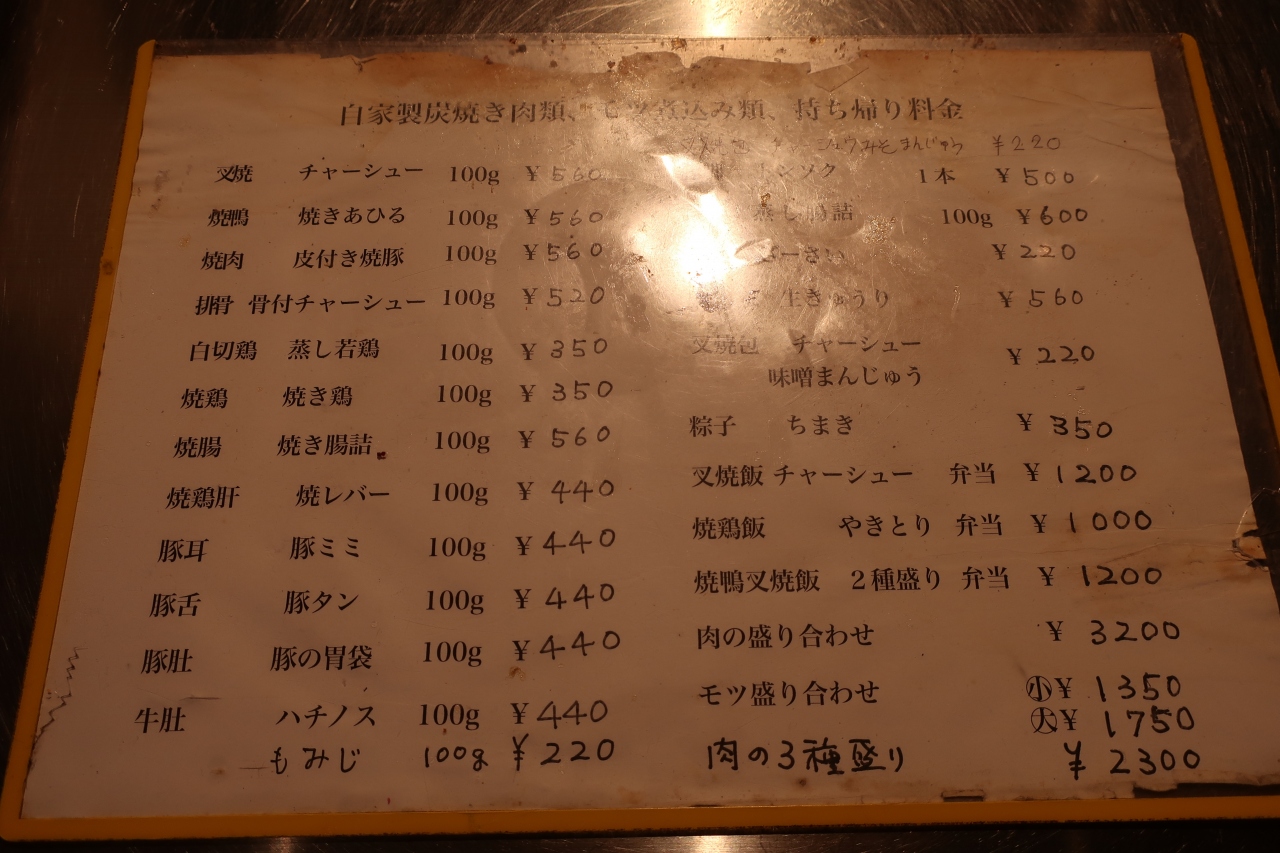 自家製炭焼き肉類、モツ煮込み類、持ち帰り料金
叉焼 チャーシュー 100g ￥560
焼鴨 焼きあひる 100g ￥560
焼肉 皮付き焼豚 100g ￥560
排骨 骨付チャーシュー 100g ￥520
白切鶏 蒸し若鶏 100g ￥350
焼鶏 焼き鶏 100g ￥350
焼腸 焼き腸詰 100g ￥560
焼鶏肝 焼レバー 100g ￥440
豚耳 豚ミミ 100g ￥440
豚舌 豚タン 100g ￥440
豚肚 豚の胃袋 100g ￥440
牛肚 ハチノス 100g ￥440
もみじ 100g ￥220
みそまんじゅう ￥220
トンソク 1本 ￥500
蒸し腸詰 100g ￥600
ーさい ￥220
生きゅうり ￥560
叉焼包 チャーシュー
味噌まんじゅう ￥220
粽子 ちまき ￥350
叉焼飯 チャーシュー 弁当 ￥1200
焼鶏飯 やきとり 弁当 ￥1000
焼鴨叉焼飯 2種盛り 弁当 ￥1200
肉の盛り合わせ ￥3200
モツ盛り合わせ 小￥1350
大￥1750
肉の3種盛り ￥2300